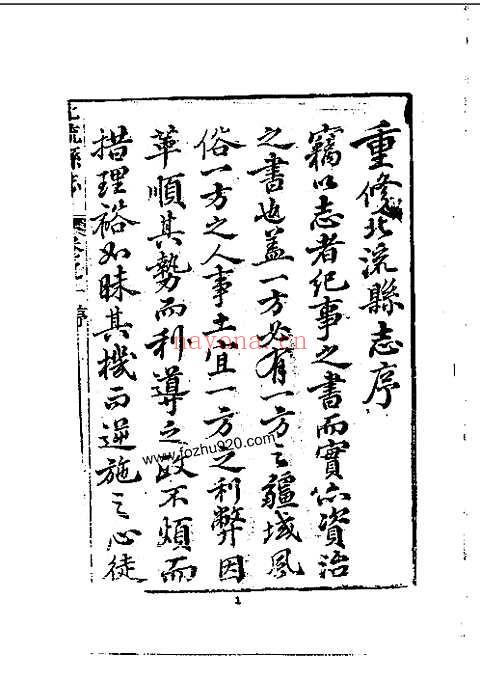 重修北流縣志序
竊以志者紀事之書而實亦資治
之書也蓋一方必有一方之疆域風
俗一方之人事土宜一方之利弊因
革順其勢而利導之政不煩而
措理裕如昧其機而逆施之心徒
北流縣志
序
nayona.cn
www.fozhu920.com
1